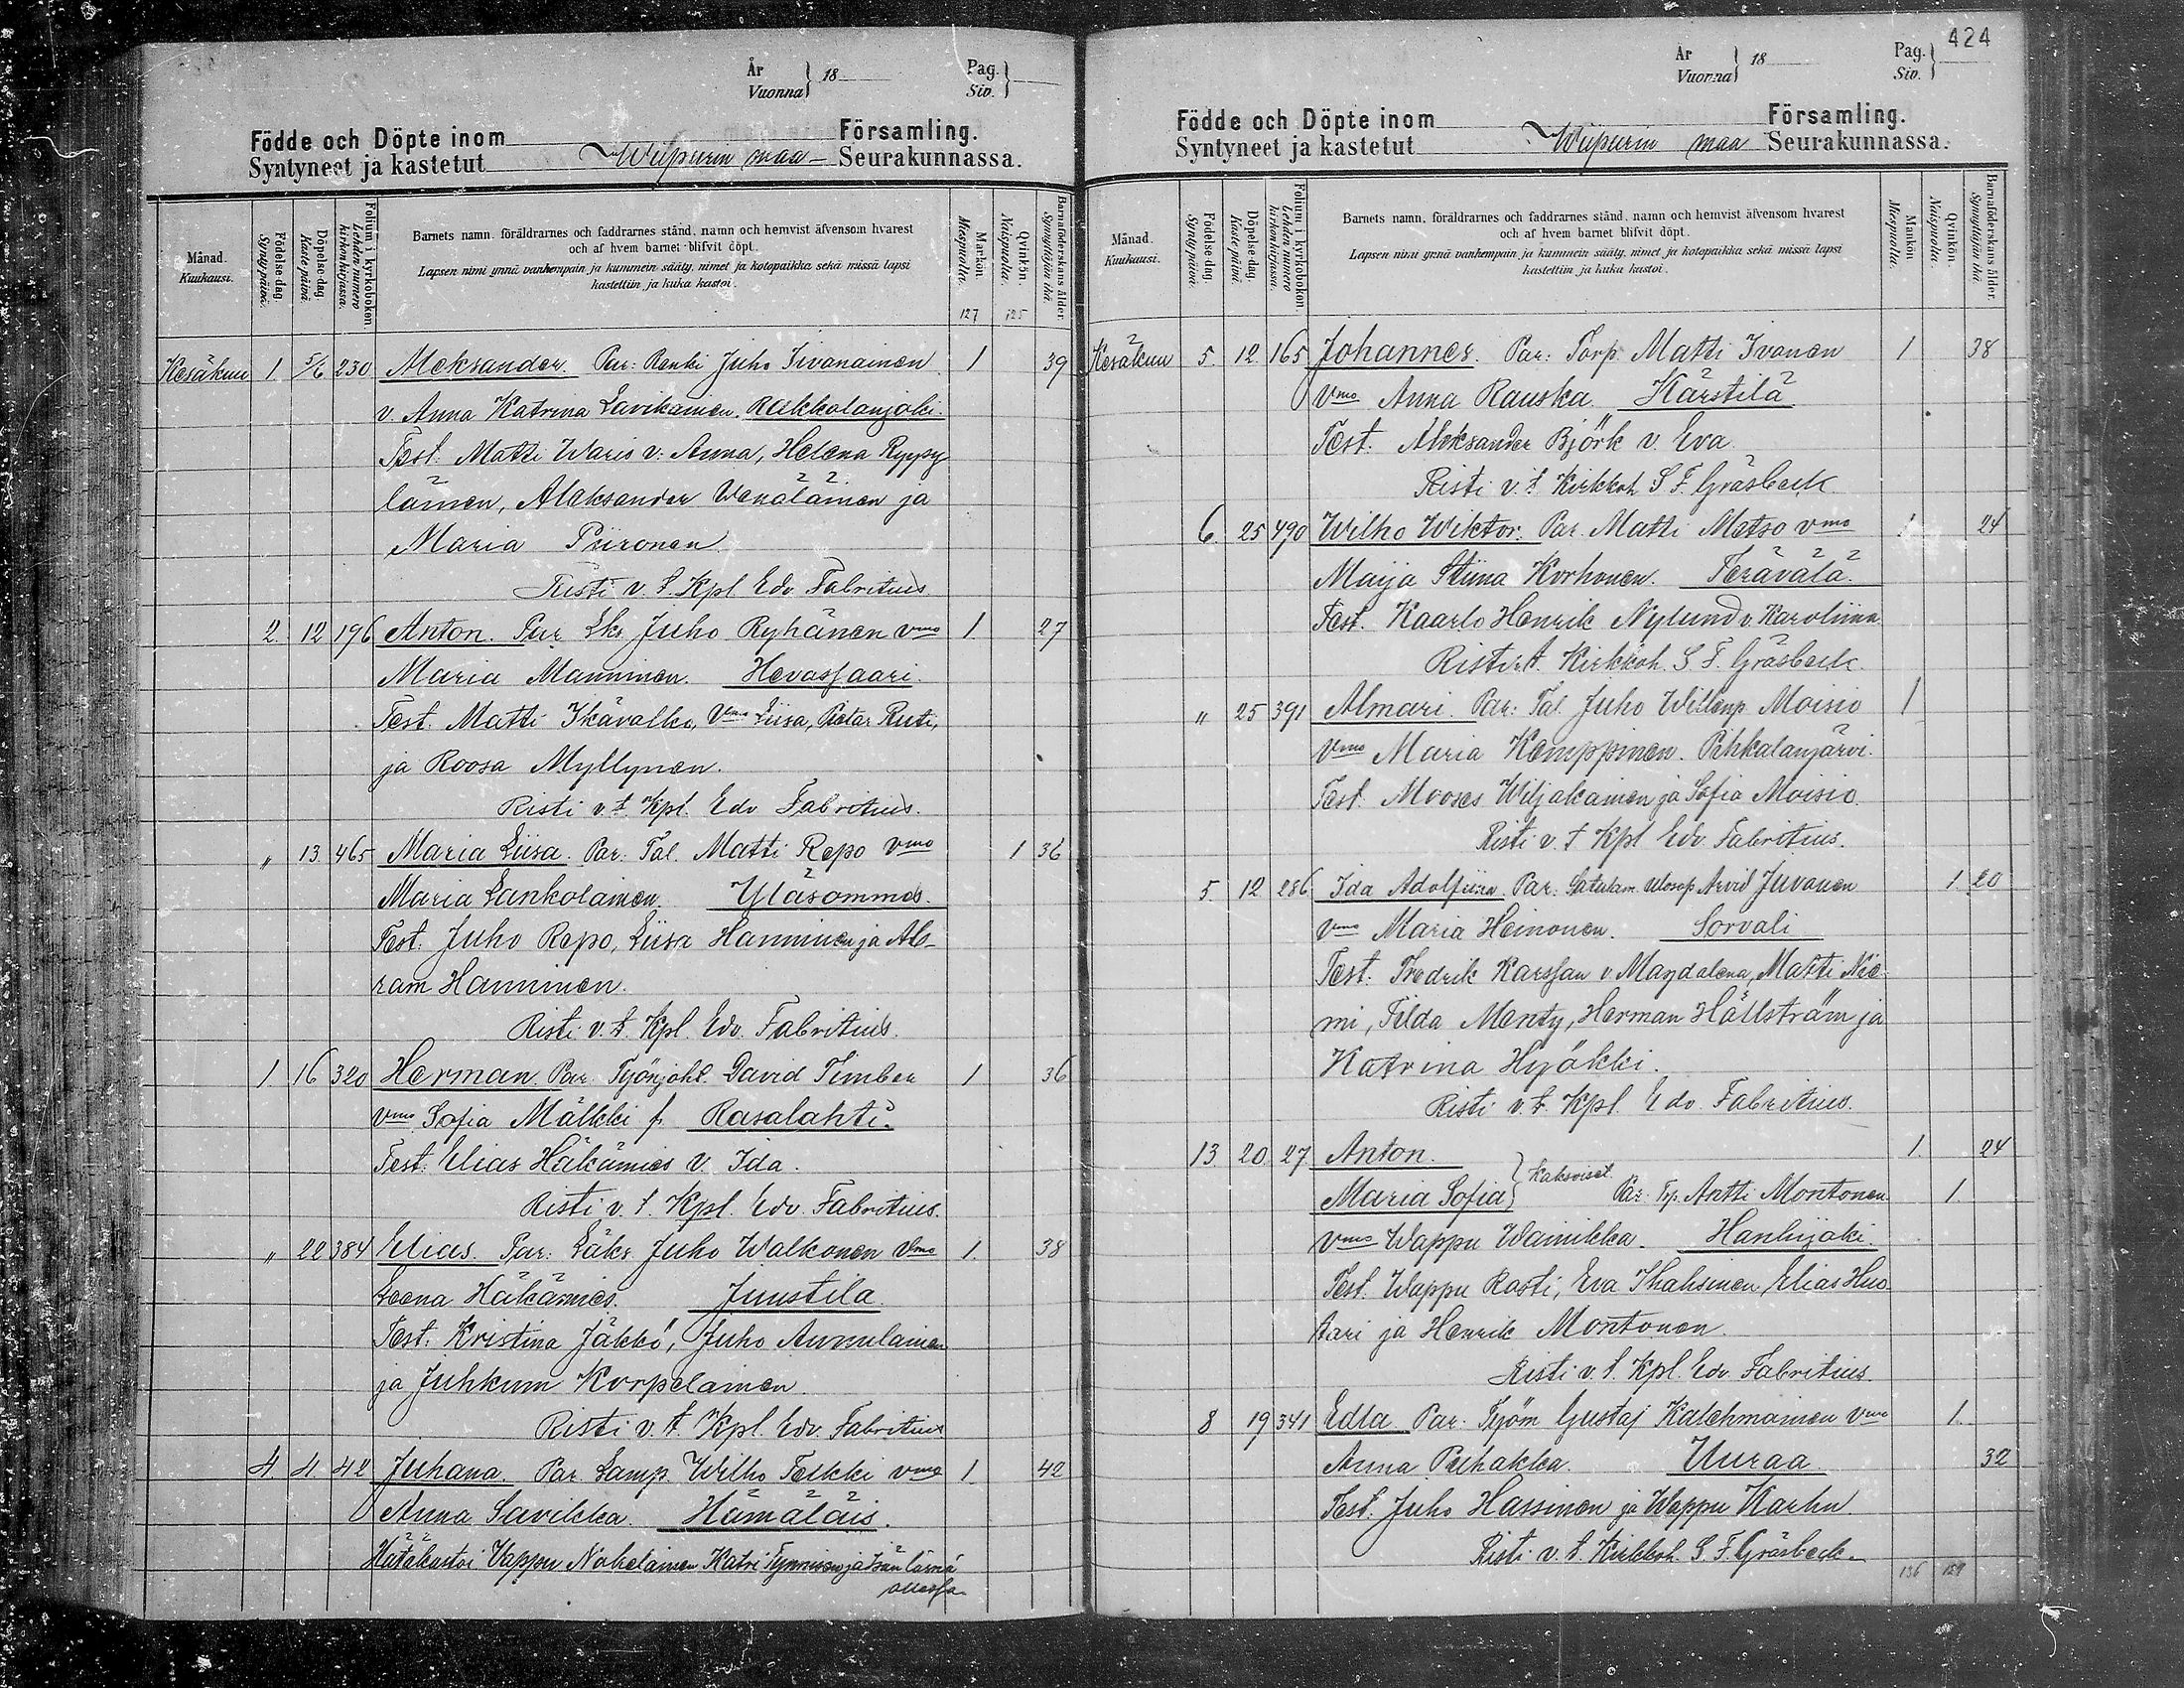 År
Vuonna } 18
Pag.
Siv. }
Födde och Döpte inom Församling.
Syntyneet ja kastetut Wiipurin maa- Seurakunnassa.
Månad.
Kuukausi.
Födelse-dag.
Syntymäpäivä.
Döpelse-dag.
Kastepäivä.
Folium i kyrkoboken
Lehden numero
kirkonkirjassa.
Barnets namn, föräldrarnes och faddrarnes stånd, namn och hemvist äfvensom hvarest
och af hvem barnet blifvit döpt.
Lapsen nimi ynnä vanhempain ja kummein sääty, nimet ja kotopaikka sekä missä lapsi
kastettiin ja kuka kastoi.
Mankön.
Miespuolia.
Qvinkön.
Naispuolia.
Barnaföderskans ålder.
Synnyttäjän ikä.
127 125
Kesäkuu 1. 5/6 230 Aleksander. Par: Renki Juho Iivanainen 1 39
v. Anna Katrina Lavikainen. Rakkolanjoki.
Test. Matti Waris v. Anna, Helena Ryppy
läinen, Aleksander Wenäläinen ja
Maria Piironen
Risti v. t. Kpl Edv. Fabritius
2. 12 196 Anton. Par Lks Juho Ryhänen vmo 1. 27
Maria Manninen. Hevossaari.
Test. Matti Ikävalko, Vmo Liisa, Pietar Ruti,
ja Roosa Myllynen.
Risti v. t. Kpl. Edv Fabritius.
„ 13. 465 Maria Liisa. Par: Tal. Matti Repo vmo 1 36
Maria Lankolainen. Yläsommes.
Test. Juho Repo, Liisa Hanninen ja Ab-
ram Hanninen.
Risti v. t. Kpl. Edv. Fabritius.
1. 16 320 Herman. Par. Työnjoht. David Timber 1 36
vmo Sofia Mälkki f. Rasalahti.
Test: Elias Häkämies v. Ida.
Risti v. t. Kpl. Edv. Fabritius.
„ 22 384 Elias. Par: Läks. Juho Walkonen Vmo 1. 38
Leena Häkämies. Juustila
Test. Kristina Jäkkö, Juho Aunulainen
ja Juhkum Korpelainen.
Risti v. t. Kpl. Edv. Fabritius
4 4 42 Juhana. Par Lamp. Wilho Teikki vmo 1 42
Anna Savikka. Hämäläis.
Hätäkastoi Vappu Nokelainen Katri Tynnisen ja Isän läsnä
ollessa
424
År
Vuonna } 18
Pag.
Siv. }
Födde och Döpte inom Församling.
Syntyneet ja kastetut Wiipurin maa Seurakunnassa.
Månad.
Kuukausi.
Födelse-dag.
Syntypäivä.
Döpelse-dag.
Kastepäivä.
Folium i kyrkoboken.
Lehden numero
kirkonkirjassa.
Barnets namn, föräldrarnes och faddrarnes stånd, namn och hemvist äfvensom hvarest
och af hvem barnet blifvit döpt.
Lapsen nimi ynnä vanhempain ja kummein sääty, nimet ja kotopaikka sekä missä lapsi
kastettiin ja kuka kastoi.
Mankön.
Miespuolia.
Qvinkön.
Naispuolia.
Barnaföderskans ålder.
Synnyttäjän ikä.
Kesäkuu 5. 12. 165 Johannes. Par: Torp. Matti Ivonen 1 38
Vmo Anna Rauska. Kärstilä
Test. Aleksander Björk v. Eva.
Risti v. t. Kirkkoh. S F. Gräsbeck
6. 25 490 Wilho Wiktor. Par. Matti Matso vmo 1 24
Maija Stiina Korhonen. Terävälä.
Test. Kaarlo Henrik Nylund v. Karoliina
Risti v. t. Kirkkoh. S. F. Gräsbeck.
„ 25 391 Almari. Par: Tal. Juho Willenp. Moisio 1
Vmo Maria Kemppinen. Pihkalanjärvi.
Test. Mooses Wiljakainen ja Sofia Moisio.
Risti v. t Kpl Edv. Fabritius.
5. 12 286 Ida Adolfiina. Par: Satulam. Arvid Juvonen 1. 20
Vmo Maria Heinonen. Sorvali
Test: Fredrik Karssan v. Magdalena, Matti Nie
mi, Tilda Menty, Herman Hällström ja
Katrina Hyökki.
Risti v. t. Kpl. Edv. Fabritius.
13. 20 27 Anton. 1. 24
Maria Sofia } Kaksoiset. Par: Tp. Antti Montonen. 1.
vmo Wappu Wainikka. Hanhijoki.
Test. Wappu Rosti, Eva Ihalainen, Elias Huo
tari ja Henrik Montonen.
Risti v. t. Kpl. Edv. Fabritius.
8 19 341 Edla. Par. Työm Gustaf Kalehmainen vmo 1.
Anna Puhakka. Uuraa 32
Test. Juho Hassinen ja Wappu Karhu.
Risti v. t. Kirkkoh. S. F. Gräsbeck.
136 129